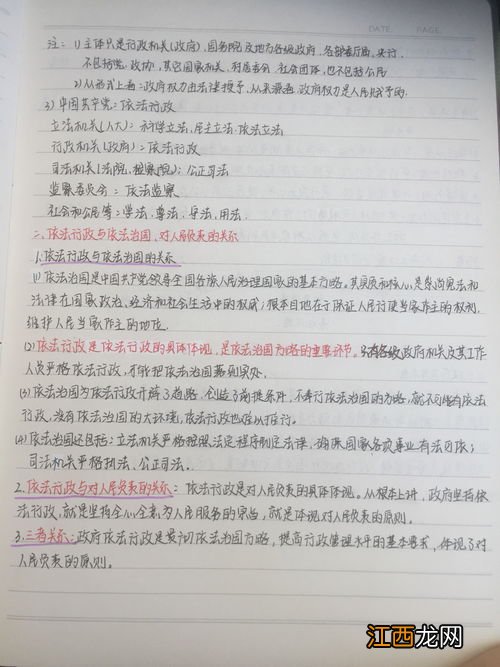 DATE PAGE
注：1) 主体只是行政机关(政府)，国务院及地方各级政府，各部委厅局、央行，
不包括党、政协，其它国家机关、村居委会、社会团体，也不包括公民
2) 从形式上看：政府权力由法律授予，从来源看，政府权力是人民赋予的.
3) 中国共产党：依法行政
立法机关(人大)：科学立法，民主立法，依法立法
行政机关(政府)：依法行政
司法机关(法院，检察院)：公正司法
监察委员会：依法监察.
社会和公民等：学法、尊法、守法、用法.
二、依法行政与依法治国、对人民负责的关系
1、依法行政与依法治国的关系
(1) 依法治国是中国共产党领导全国各族人民治理国家的基本方略。其实质和核心是崇尚宪法和
法律在国家政治、经济和社会生活中的权威；根本目地在于保证人民行使当家作主的权利，
维护人民当家作主的地位.
(2) 依法行政是依法行政的具体体现，是依法治国方略的重要环节。只有各级政府机关及其工作
人员严格依法行政，才能把依法治国落到实处。
(3) 依法治国为依法行政开辟了道路，创造了前提条件，不奉行依法治国的方略，就不可能有依法
行政，没有依法治国的大环境，依法行政也难以推行。
(4) 依法治国还包括：立法机关严格按照法定程序制定法律，确保国家各项事业有法可依；
司法机关严格执法、公正司法.
2. 依法行政与对人民负责的关系：依法行政是对人民负责的具体体现。从根本上讲，政府坚持依
法行政，就是坚持全心全意为人民服务的宗旨，就是体现对人民负责的原则。
3. 三者关系：政府依法行政是贯彻依法治国方略，提高行政管理水平的基本要求，体现了对
人民负责的原则。
江西龙网